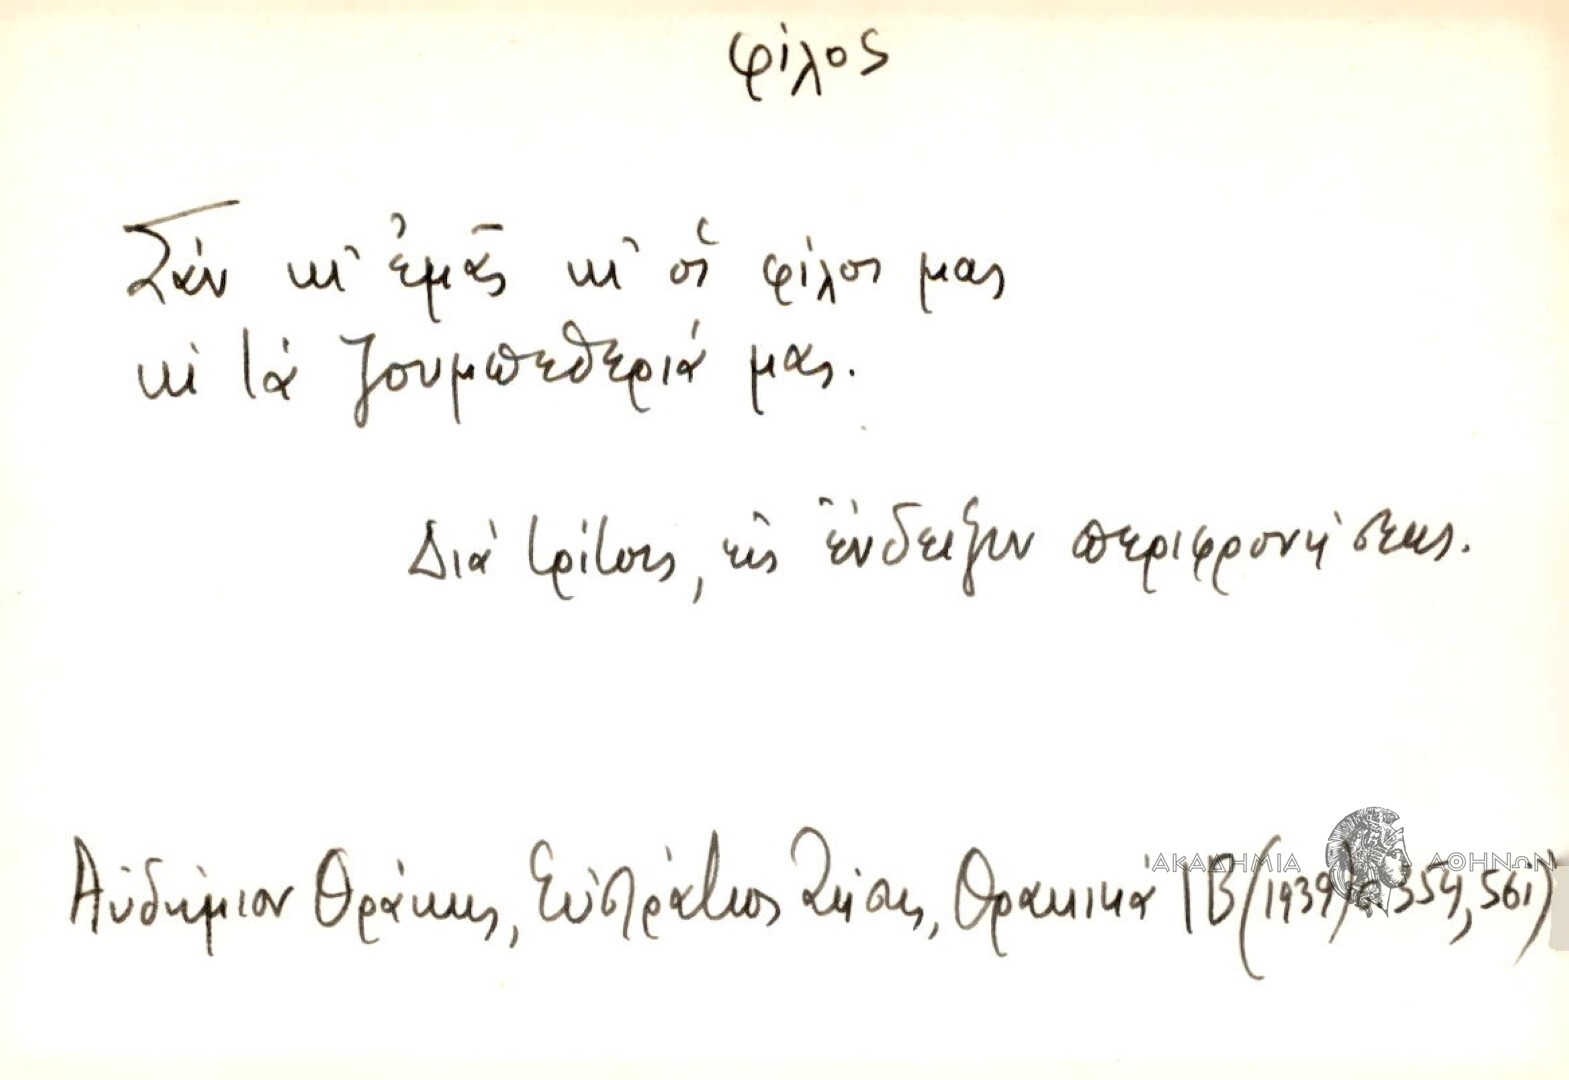 φίλος
Σὰν κι' ἐμᾶς κι' οἱ φίλοι μας
κι τὰ ζουμπεθεριά μας.
Διὰ τρίτους, εἰς ἔνδειξιν περιφρονήσεως.
Αὐδήμιον Θράκης, Εὐστράτιος Ζήσης, Θρακικά ΙΒ (1939) σ. 354, 561)
ΑΚΑΔΗΜΙΑ ΑΘΗΝΩΝ